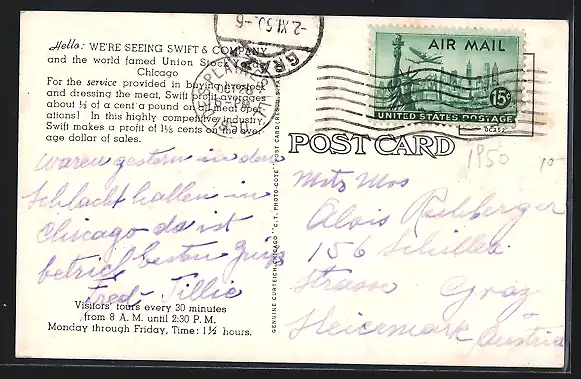 Hello: WE'RE SEEING SWIFT & COMPANY
and the world famed Union Stock
Chicago
For the service provided in buying livestock
and dressing the meat, Swift profit averages
about ⅕ of a cent a pound on all meat oper-
ations! In this highly competitive industry,
Swift makes a profit of 1⅛ cents on the aver-
age dollar of sales.
waren gestern in den
Schlachthallen in
Chicago da ist
betrieb besten
Fred Tillie
Visitors' tours every 30 minutes
from 8 A. M. until 2:30 P. M.
Monday through Friday, Time: 1½ hours.
GENUINE CURTEICH-CHICAGO "C.T. PHOTO-COTE" POST CARD
-2.XI.50-6
GRAZ
AIR MAIL
15¢
UNITED STATES POSTAGE
POST CARD
1950
10-
Alois
156 Schiller
Strasse Graz
Steiermark Austria